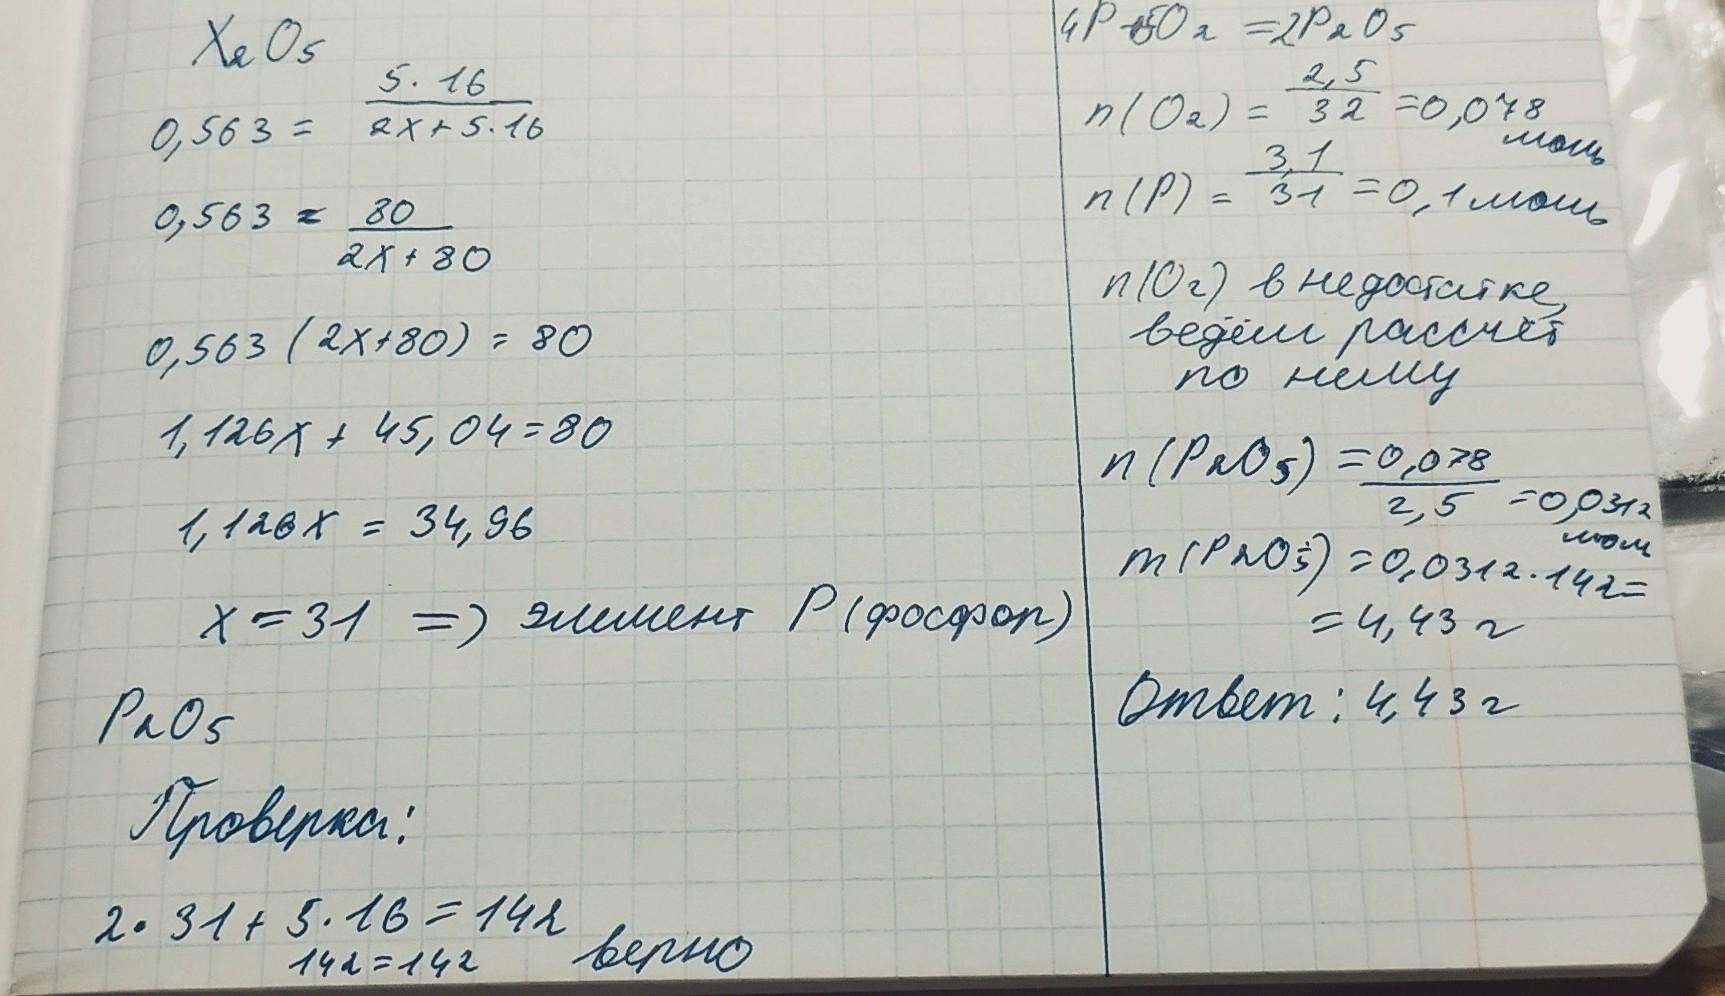 X₂O₅
0,563 = 5·16 / 2x+5·16
0,563 = 80 / 2x+80
0,563 (2x+80) = 80
1,126x + 45,04 = 80
1,126x = 34,96
x = 31 => элемент P (фосфор)
P₂O₅
Проверка:
2·31+5·16=142
142=142 верно
4P+5O₂ = 2P₂O₅
n(O₂) = 2,5 / 32 = 0,078
моль
n(P) = 3,1 / 31 = 0,1 моль
n(O₂) в недостатке,
ведём рассчёт
по нему
n(P₂O₅) = 0,078 / 2,5 = 0,0312
моль
m(P₂O₅) = 0,0312·142=
= 4,43 г
Ответ: 4,43 г